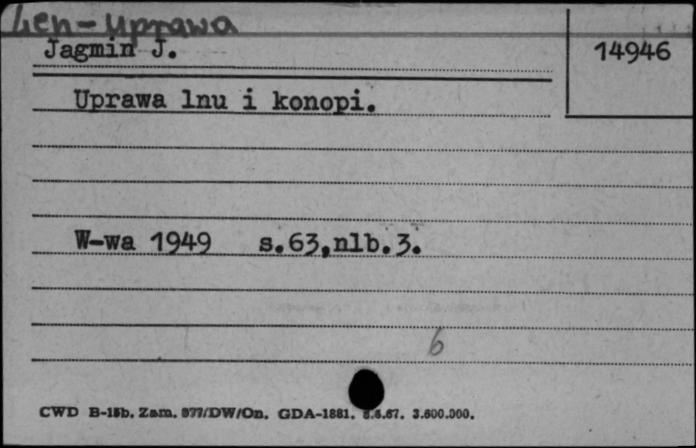 Len-uprawa
Jagmin J.
14946
Uprawa lnu i konopi.
W-wa 1949 s.63,nlb.3.
6
CWD B-15b. Zam. 977/DW/On. GDA-1881. 6.6.67. 3.600.000.